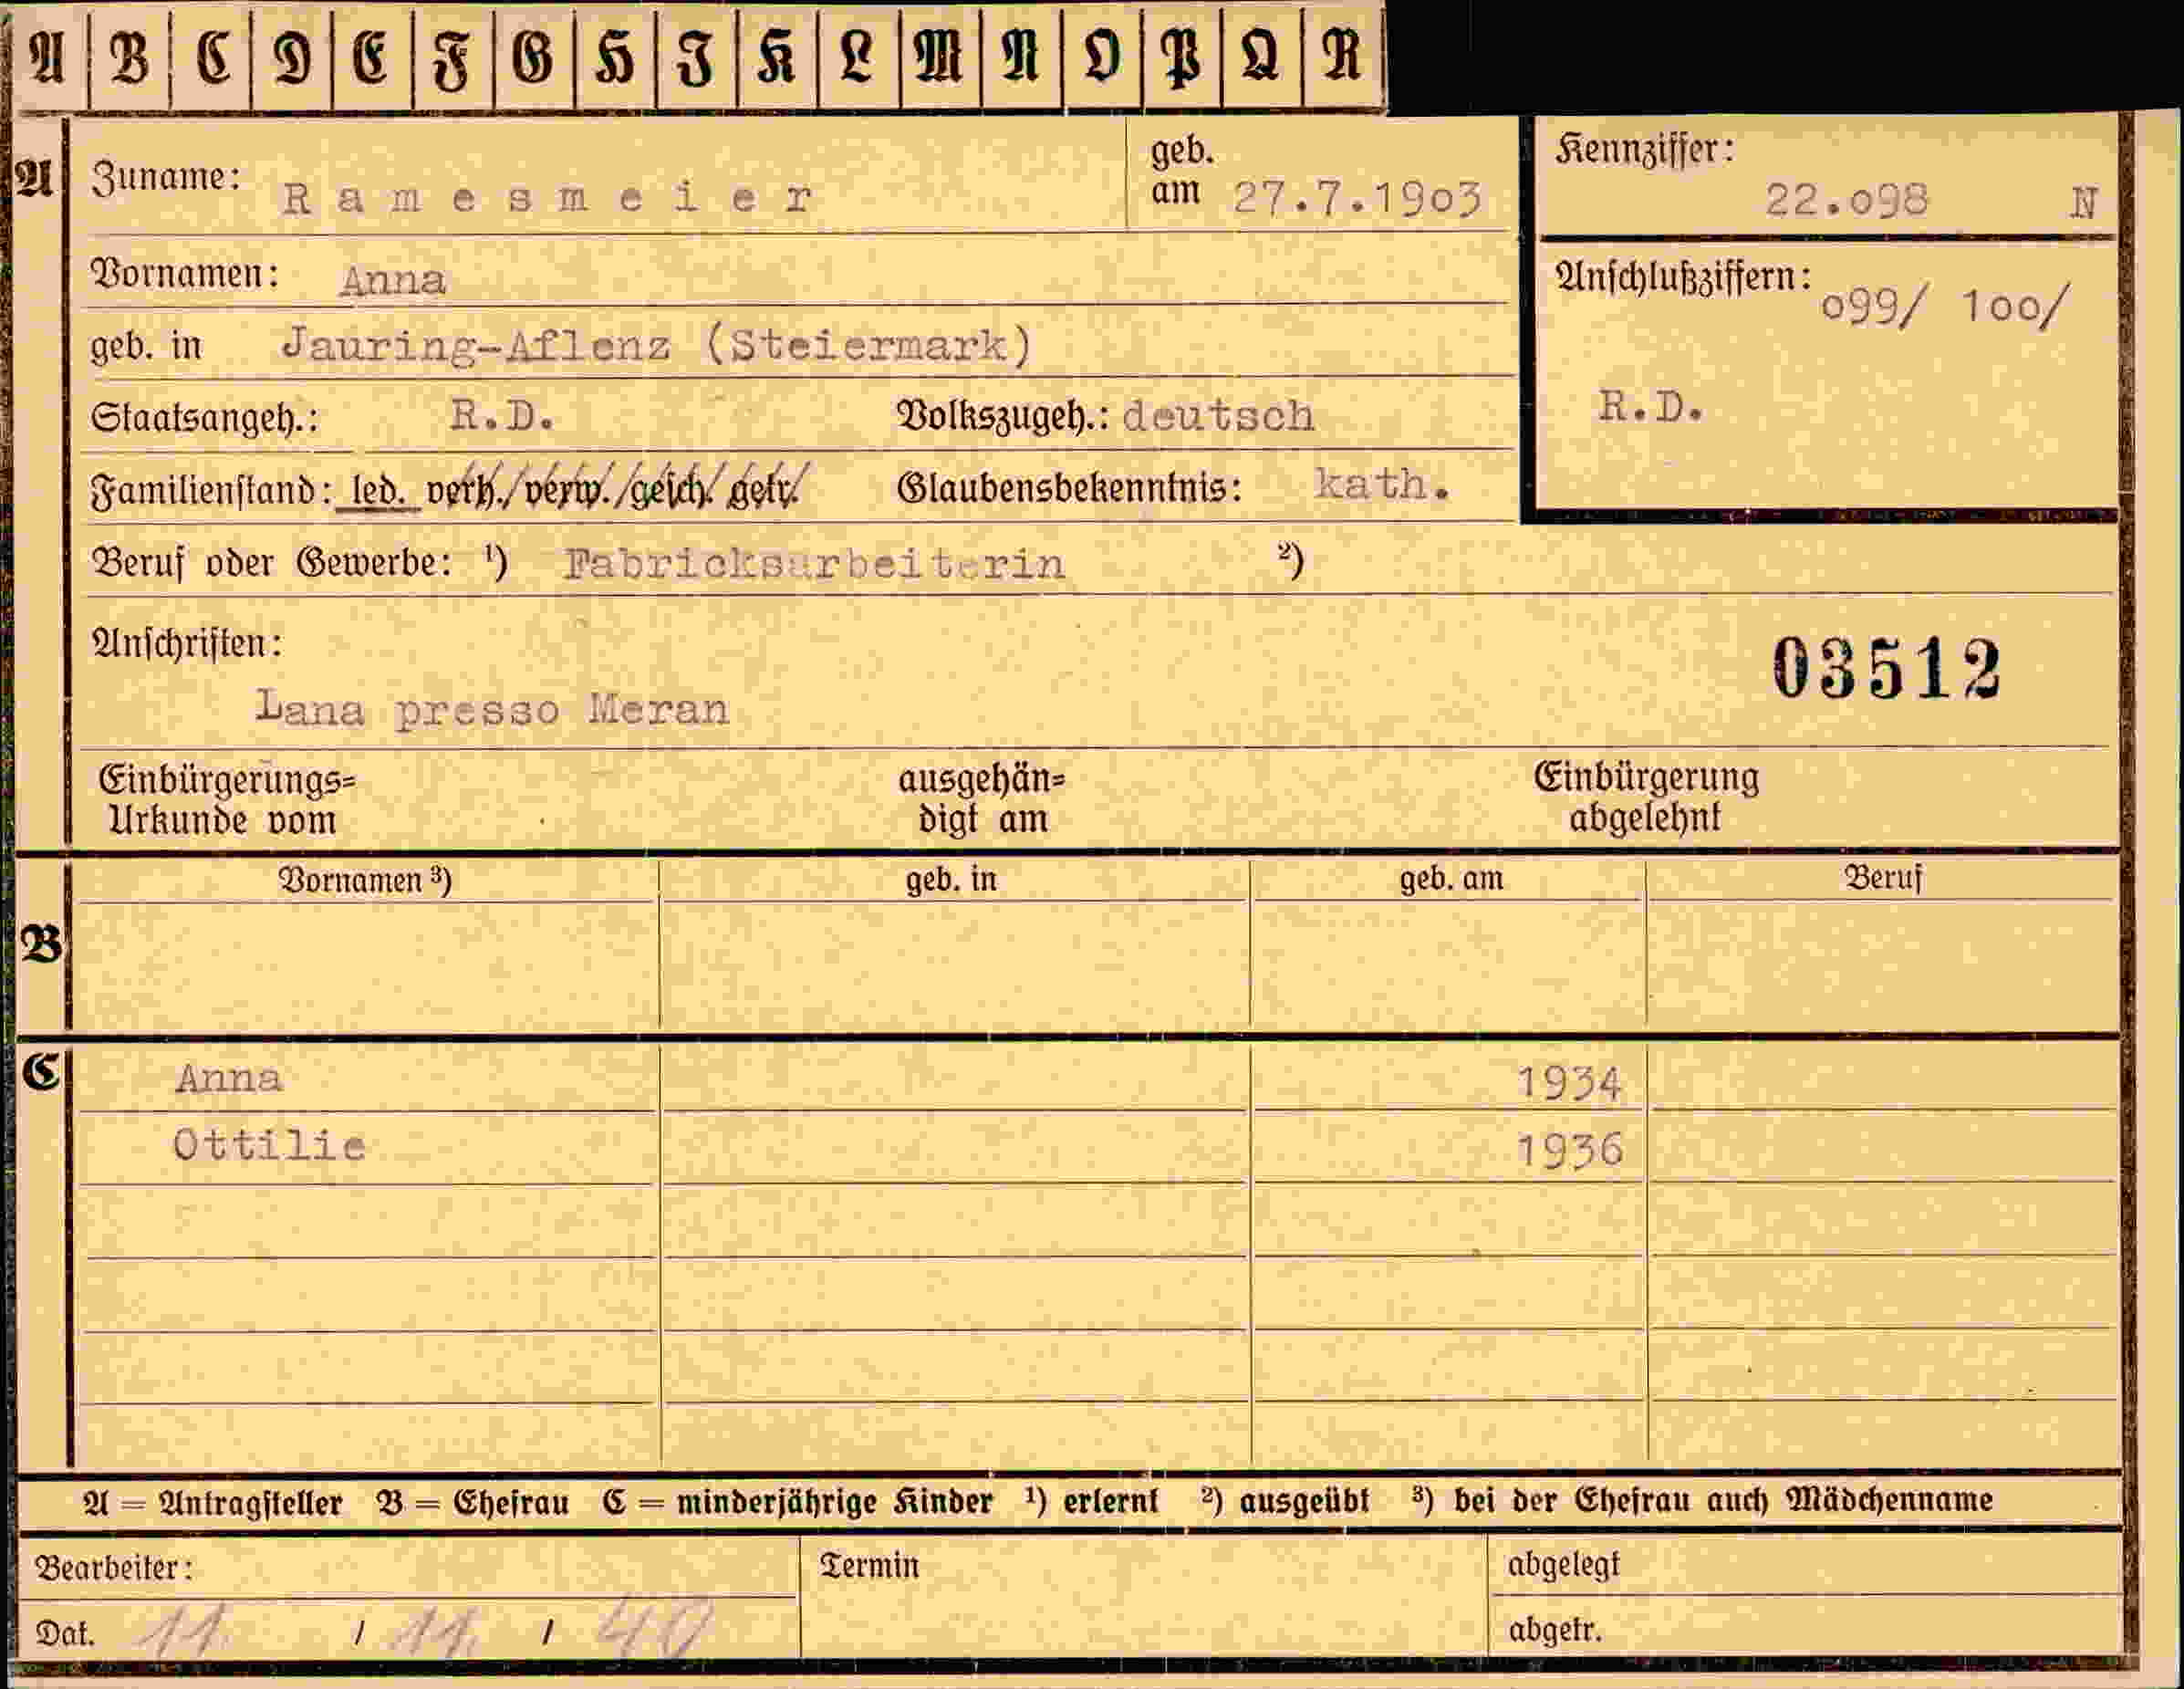 A B C D E F G H I K L M N O P Q R
A Zuname: Ramesmeier geb. am 27.7.19o3 Kennziffer: 22.o98 N
Vornamen: Anna Anschlußziffern: o99/ 1oo/
geb. in Jauring-Aflenz (Steiermark)
Staatsangeh.: R.D. Volkszugeh.: deutsch R.D.
Familienstand: led. verh./verw./gesch./getr. Glaubensbekenntnis: kath.
Beruf oder Gewerbe: ¹) Fabricksarbeiterin ²)
Anschriften: 03512
Lana presso Meran
Einbürgerungs= ausgehän= Einbürgerung
Urkunde vom digt am abgelehnt
Vornamen ³) geb. in geb. am Beruf
B
C Anna 1934
Ottilie 1936
A = Antragsteller B = Ehefrau C = minderjährige Kinder ¹) erlernt ²) ausgeübt ³) bei der Ehefrau auch Mädchenname
Bearbeiter: Termin abgelegt
Dat. 11. / 11. / 40 abgetr.